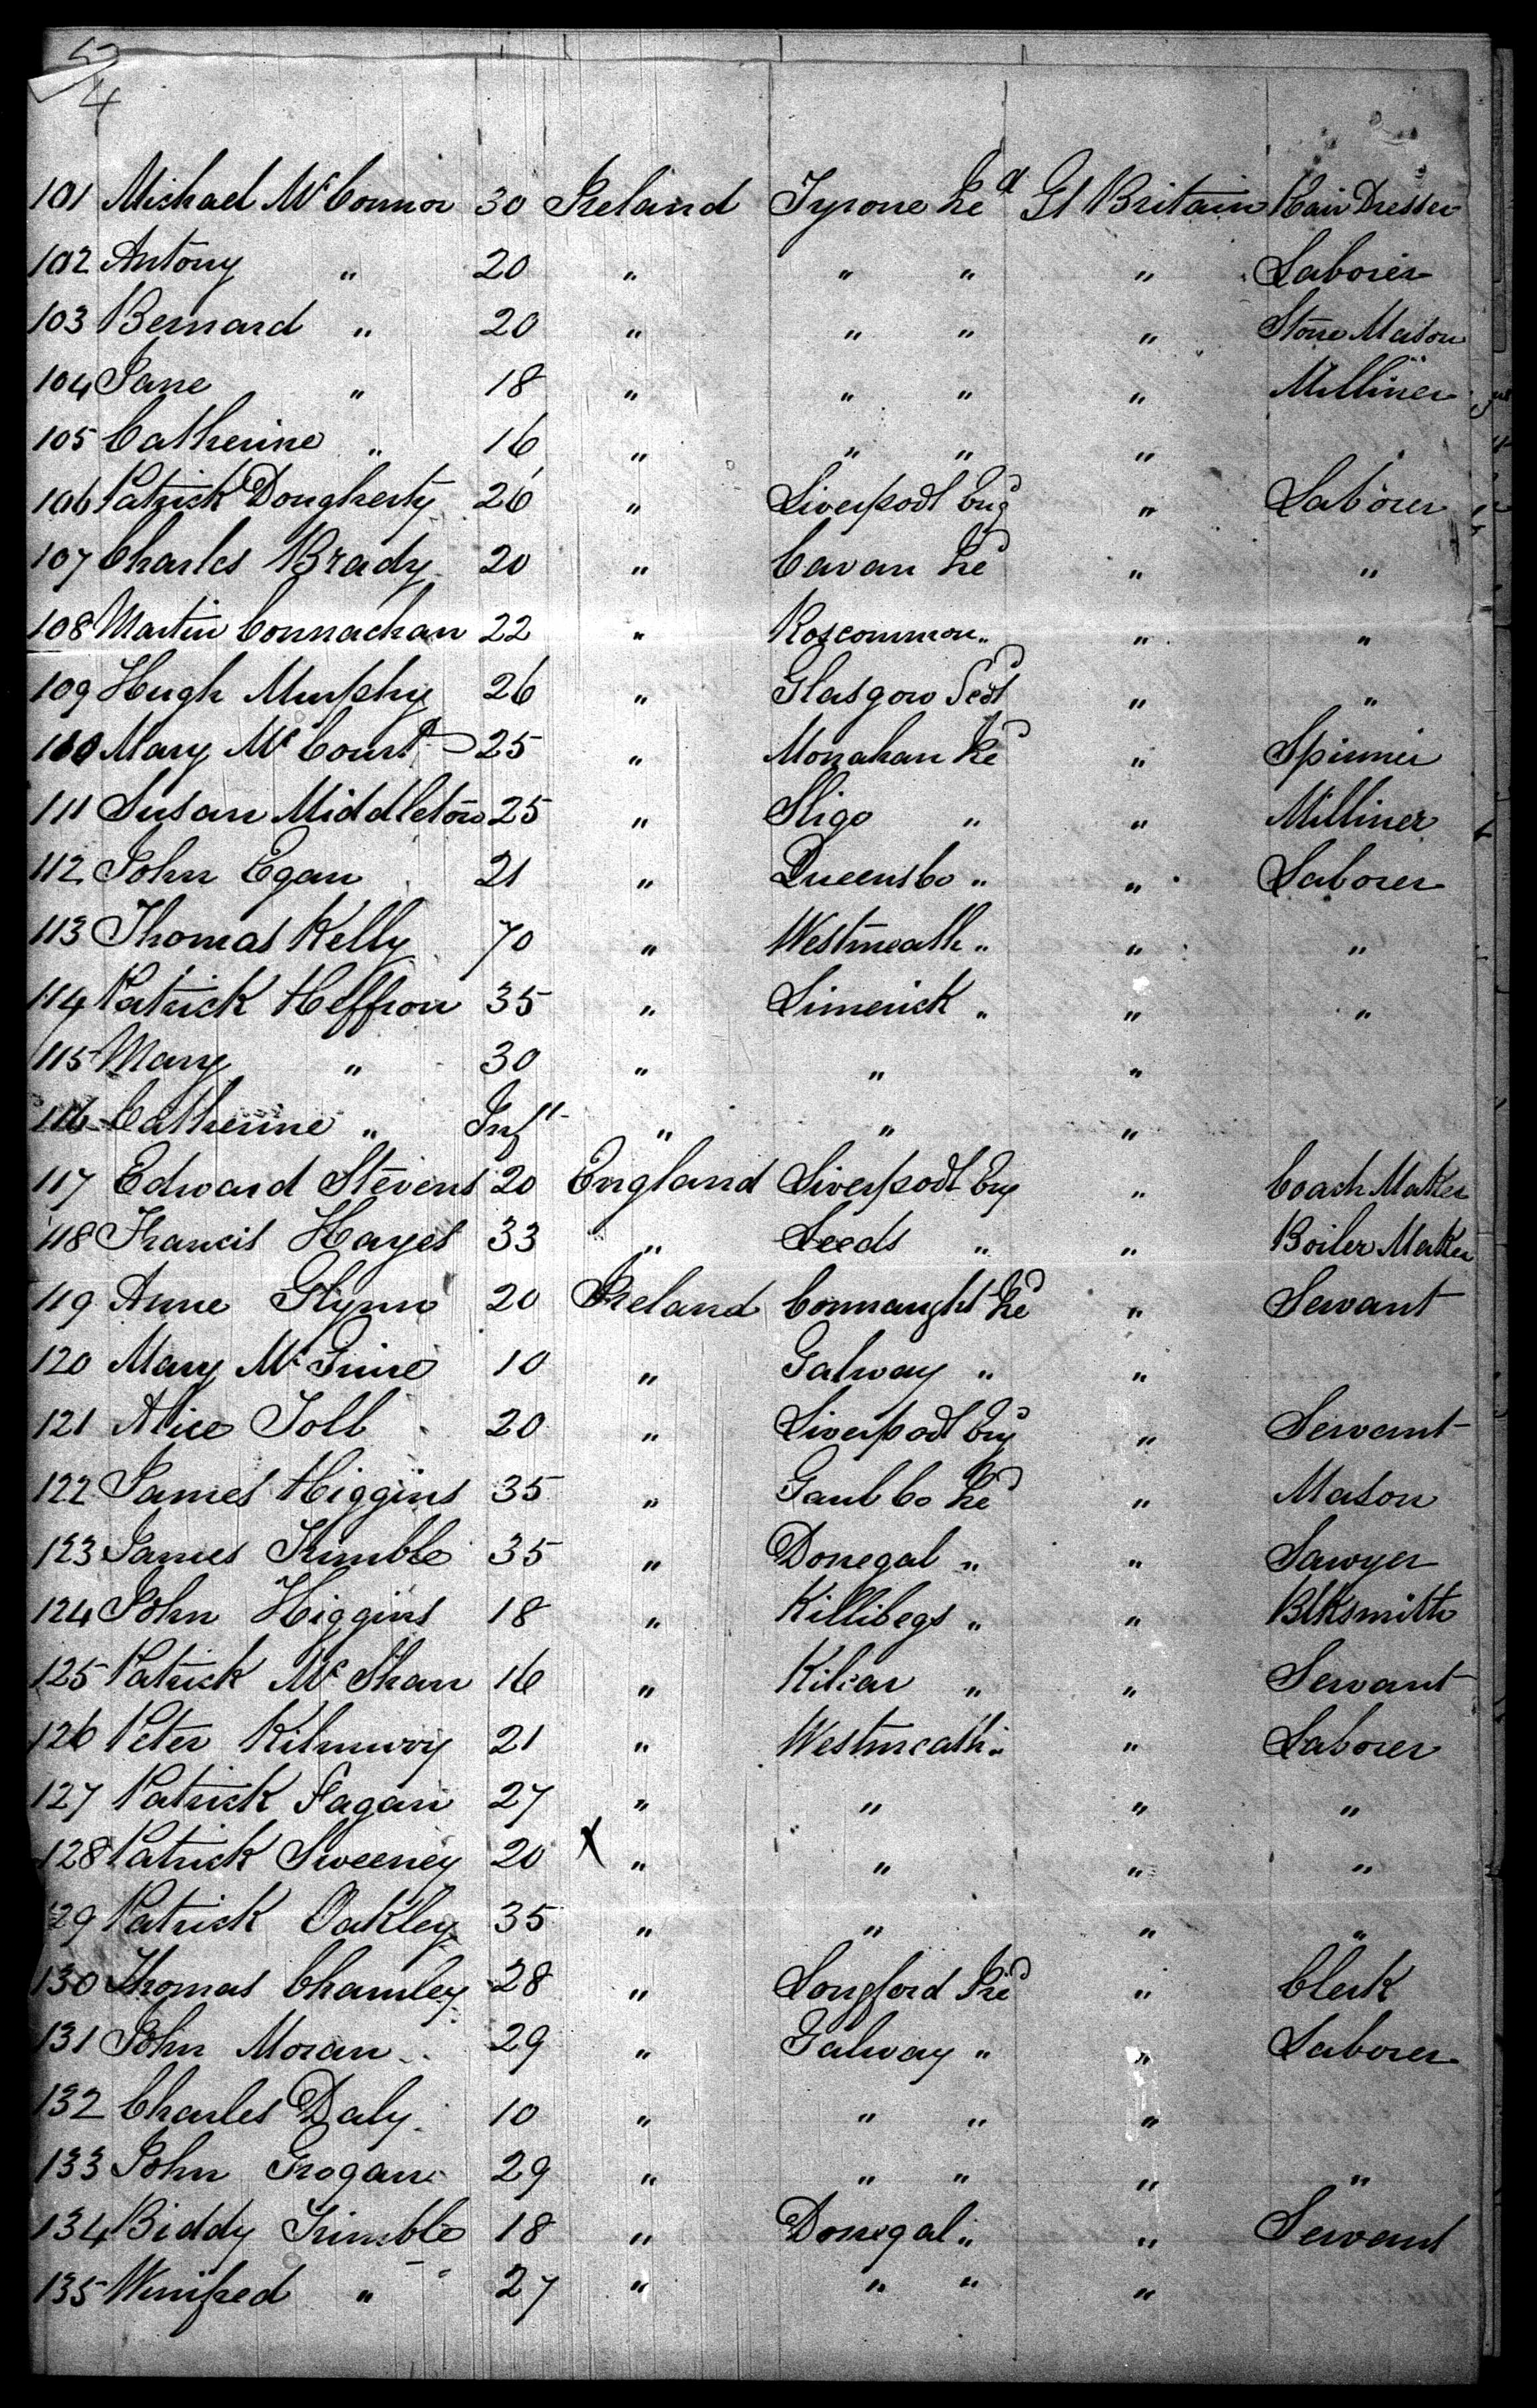 4
101 Michael McConnor 30 Ireland Tyrone Ired Gt Britain Hair Dresser
102 Antony " 20 " " " " Laborer
103 Bernard " 20 " " " " Stone Mason
104 Jane " 18 " " " " Milliner
105 Catherine " 16 " " " "
106 Patrick Dougherty 26 " Liverpool Eng " Laborer
107 Charles Brady 20 " Cavan Ire " "
108 Martin Connachan 22 " Roscommon " " "
109 Hugh Murphy 26 " Glasgow Scot " "
110 Mary McCourt 25 " Monahan Ire " Spinner
111 Susan Middleton 25 " Sligo " " Milliner
112 John Egan 21 " Queens Co " " Laborer
113 Thomas Kelly 70 " Westmeath " " "
114 Patrick Heffron 35 " Limerick " " "
115 Mary " 30 " " "
116 Catherine " Inft " " "
117 Edward Stevens 20 England Liverpool Eng " Coach Maker
118 Francis Hayes 33 " Leeds " " Boiler Maker
119 Anne Glynn 20 Ireland Connaught Ire " Servant
120 Mary Mc 10 " Galway " "
121 Alice Toll 20 " Liverpool Eng " Servant
122 James Higgins 35 " Co Ire " Mason
123 James Trimble 35 " Donegal " " Sawyer
124 John Higgins 18 " Killibegs " " Blksmith
125 Patrick McShan 16 " Kilcar " " Servant
126 Peter 21 " Westmeath " " Laborer
127 Patrick Fagan 27 " " " "
128 Patrick Sweeney 20 X " " " "
129 Patrick Oakley 35 " " " "
130 Thomas Chamley 28 " Longford Ire " Clerk
131 John Moran 29 " Galway " " Laborer
132 Charles Daly 10 " " " "
133 John Grogan 29 " " " " "
134 Biddy Trimble 18 " Donegal " " Servant
135 Winifred " 27 " " " "